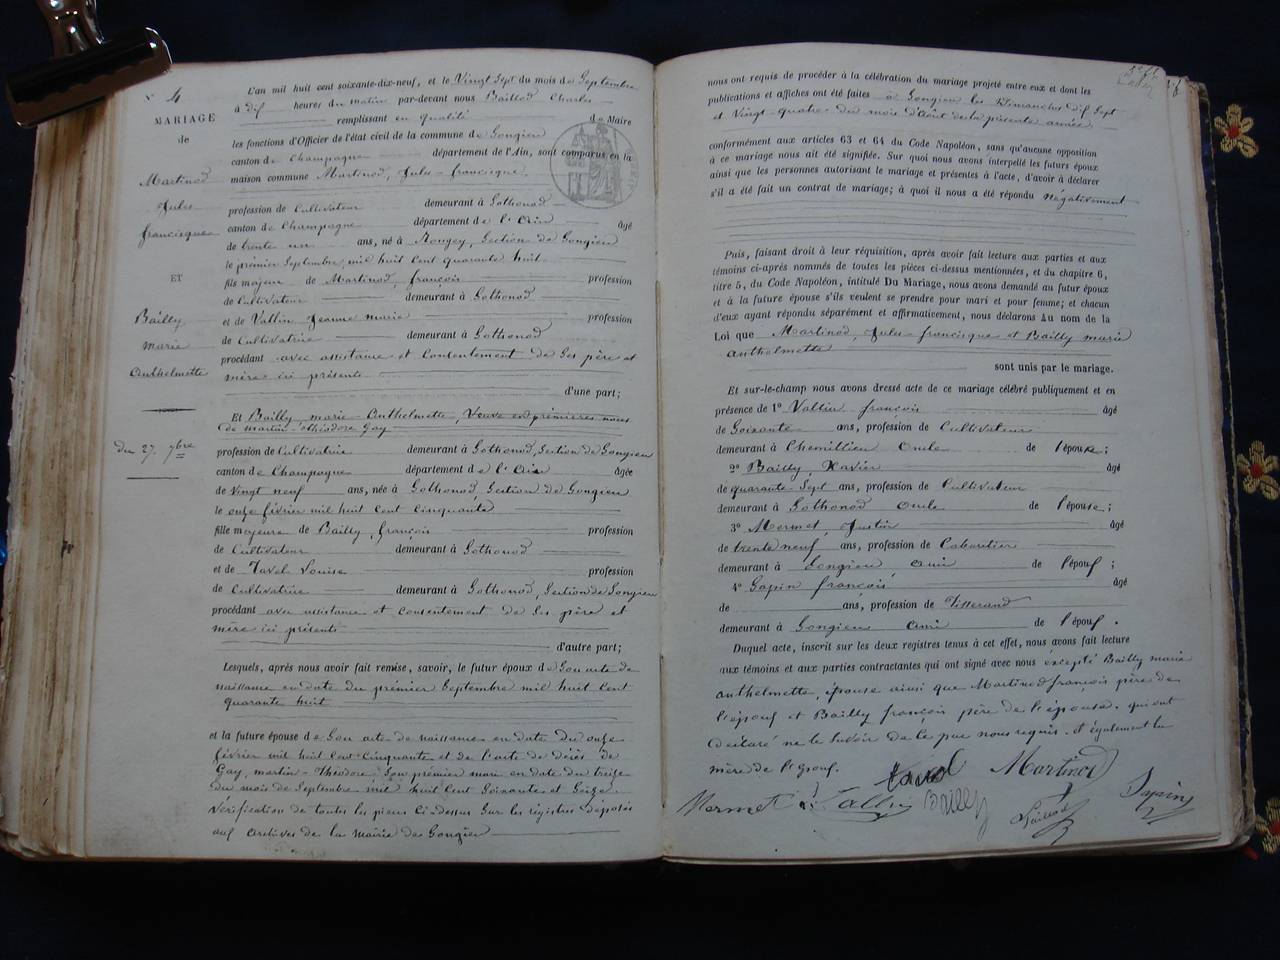 N° 4
MARIAGE
de
Martinod
Jules
francisque
ET
Bailly
marie
Anthelmette
du 27 7bre
L'an mil huit cent soixante-dix-neuf, et le Vingt Sept du mois de Septembre
à dix heures du matin par-devant nous Baillod Charles
remplissant en qualité de Maire
les fonctions d'Officier de l'état civil de la commune de Songieu
canton de Champagne département de l'Ain, sont comparus en la
maison commune Martinod, Jules-francisque,
profession de Cultivateur demeurant à Gothonod
canton de Champagne département de l'Ain âgé
de trente un ans, né à Songieu
le premier Septembre, mil huit cent quarante huit
fils majeur de Martinod, françois profession
de Cultivateur demeurant à Gothonod
et de Vallin Jeanne marie profession
de Cultivatrice demeurant à Gothonod
procédant avec assistance et Consentement de Ses père et
mère ici présents
d'une part;
Et Bailly, marie-Anthelmette, Veuve en premieres noces
de martin-théodore Gay
profession de Cultivatrice demeurant à Gothonod, Section de Songieu
canton de Champagne département de l'Ain âgée
de vingt neuf ans, née à Gothonod, Section de Songieu
le onze février mil huit cent cinquante
fille majeure de Bailly, françois profession
de Cultivateur demeurant à Gothonod
et de Tavel Louise profession
de Cultivatrice demeurant à Gothonod, Section de Songieu
procédant avec assistance et consentement de Ses père et
mère ici présents
d'autre part;
Lesquels, après nous avoir fait remise, savoir, le futur époux de Son acte de
naissance en date du premier Septembre mil huit Cent
quarante huit
et la future épouse de Son acte de naissance en date du onze
février mil huit Cent Cinquante et de l'acte de décès de
Gay, martin-Théodore, Son premier mari en date du treize
du mois de Septembre mil huit Cent Soixante et Seize.
Vérification de toutes les pièces Ci-dessus Sur les registres déposés
aux archives de la mairie de Songieu
nous ont requis de procéder à la célébration du mariage projeté entre eux et dont les
publications et affiches ont été faites à Songieu les Dimanches dix Sept
et Vingt-quatre du mois d'Août de la présente année.
conformément aux articles 63 et 64 du Code Napoléon, sans qu'aucune opposition
à ce mariage nous ait été signifiée. Sur quoi nous avons interpellé les futurs époux
ainsi que les personnes autorisant le mariage et présentes à l'acte, d'avoir à déclarer
s'il a été fait un contrat de mariage; à quoi il nous a été répondu négativement
Puis, faisant droit à leur réquisition, après avoir fait lecture aux parties et aux
témoins ci-après nommés de toutes les pièces ci-dessus mentionnées, et du chapitre 6,
titre 5, du Code Napoléon, intitulé Du Mariage, nous avons demandé au futur époux
et à la future épouse s'ils veulent se prendre pour mari et pour femme; et chacun
d'eux ayant répondu séparément et affirmativement, nous déclarons au nom de la
Loi que Martinod, Jules-francisque et Bailly marie
anthelmette
sont unis par le mariage.
Et sur-le-champ nous avons dressé acte de ce mariage célébré publiquement et en
présence de 1° Vallin françois âgé
de Soixante ans, profession de Cultivateur
demeurant à Chemillieu Oncle de l'époux;
2° Bailly, Xavier âgé
de quarante Sept ans, profession de Cultivateur
demeurant à Gothonod Oncle de l'épouse;
3° Mermet, Justin âgé
de trente neuf ans, profession de Cabaretier
demeurant à Songieu ami de l'époux;
4° Sapin françois âgé
de ans, profession de Tisserand
demeurant à Songieu ami de l'époux.
Duquel acte, inscrit sur les deux registres tenus à cet effet, nous avons fait lecture
aux témoins et aux parties contractantes qui ont signé avec nous excepté Bailly marie
anthelmette, épouse ainsi que Martinod françois père de
l'époux et Bailly françois père de l'épouse, qui ont
déclaré ne le Savoir de le par nous requis. et également la
mère de l'époux.
tavel Martinod
Mermet J. Vallin Bailly Baillod Sapin